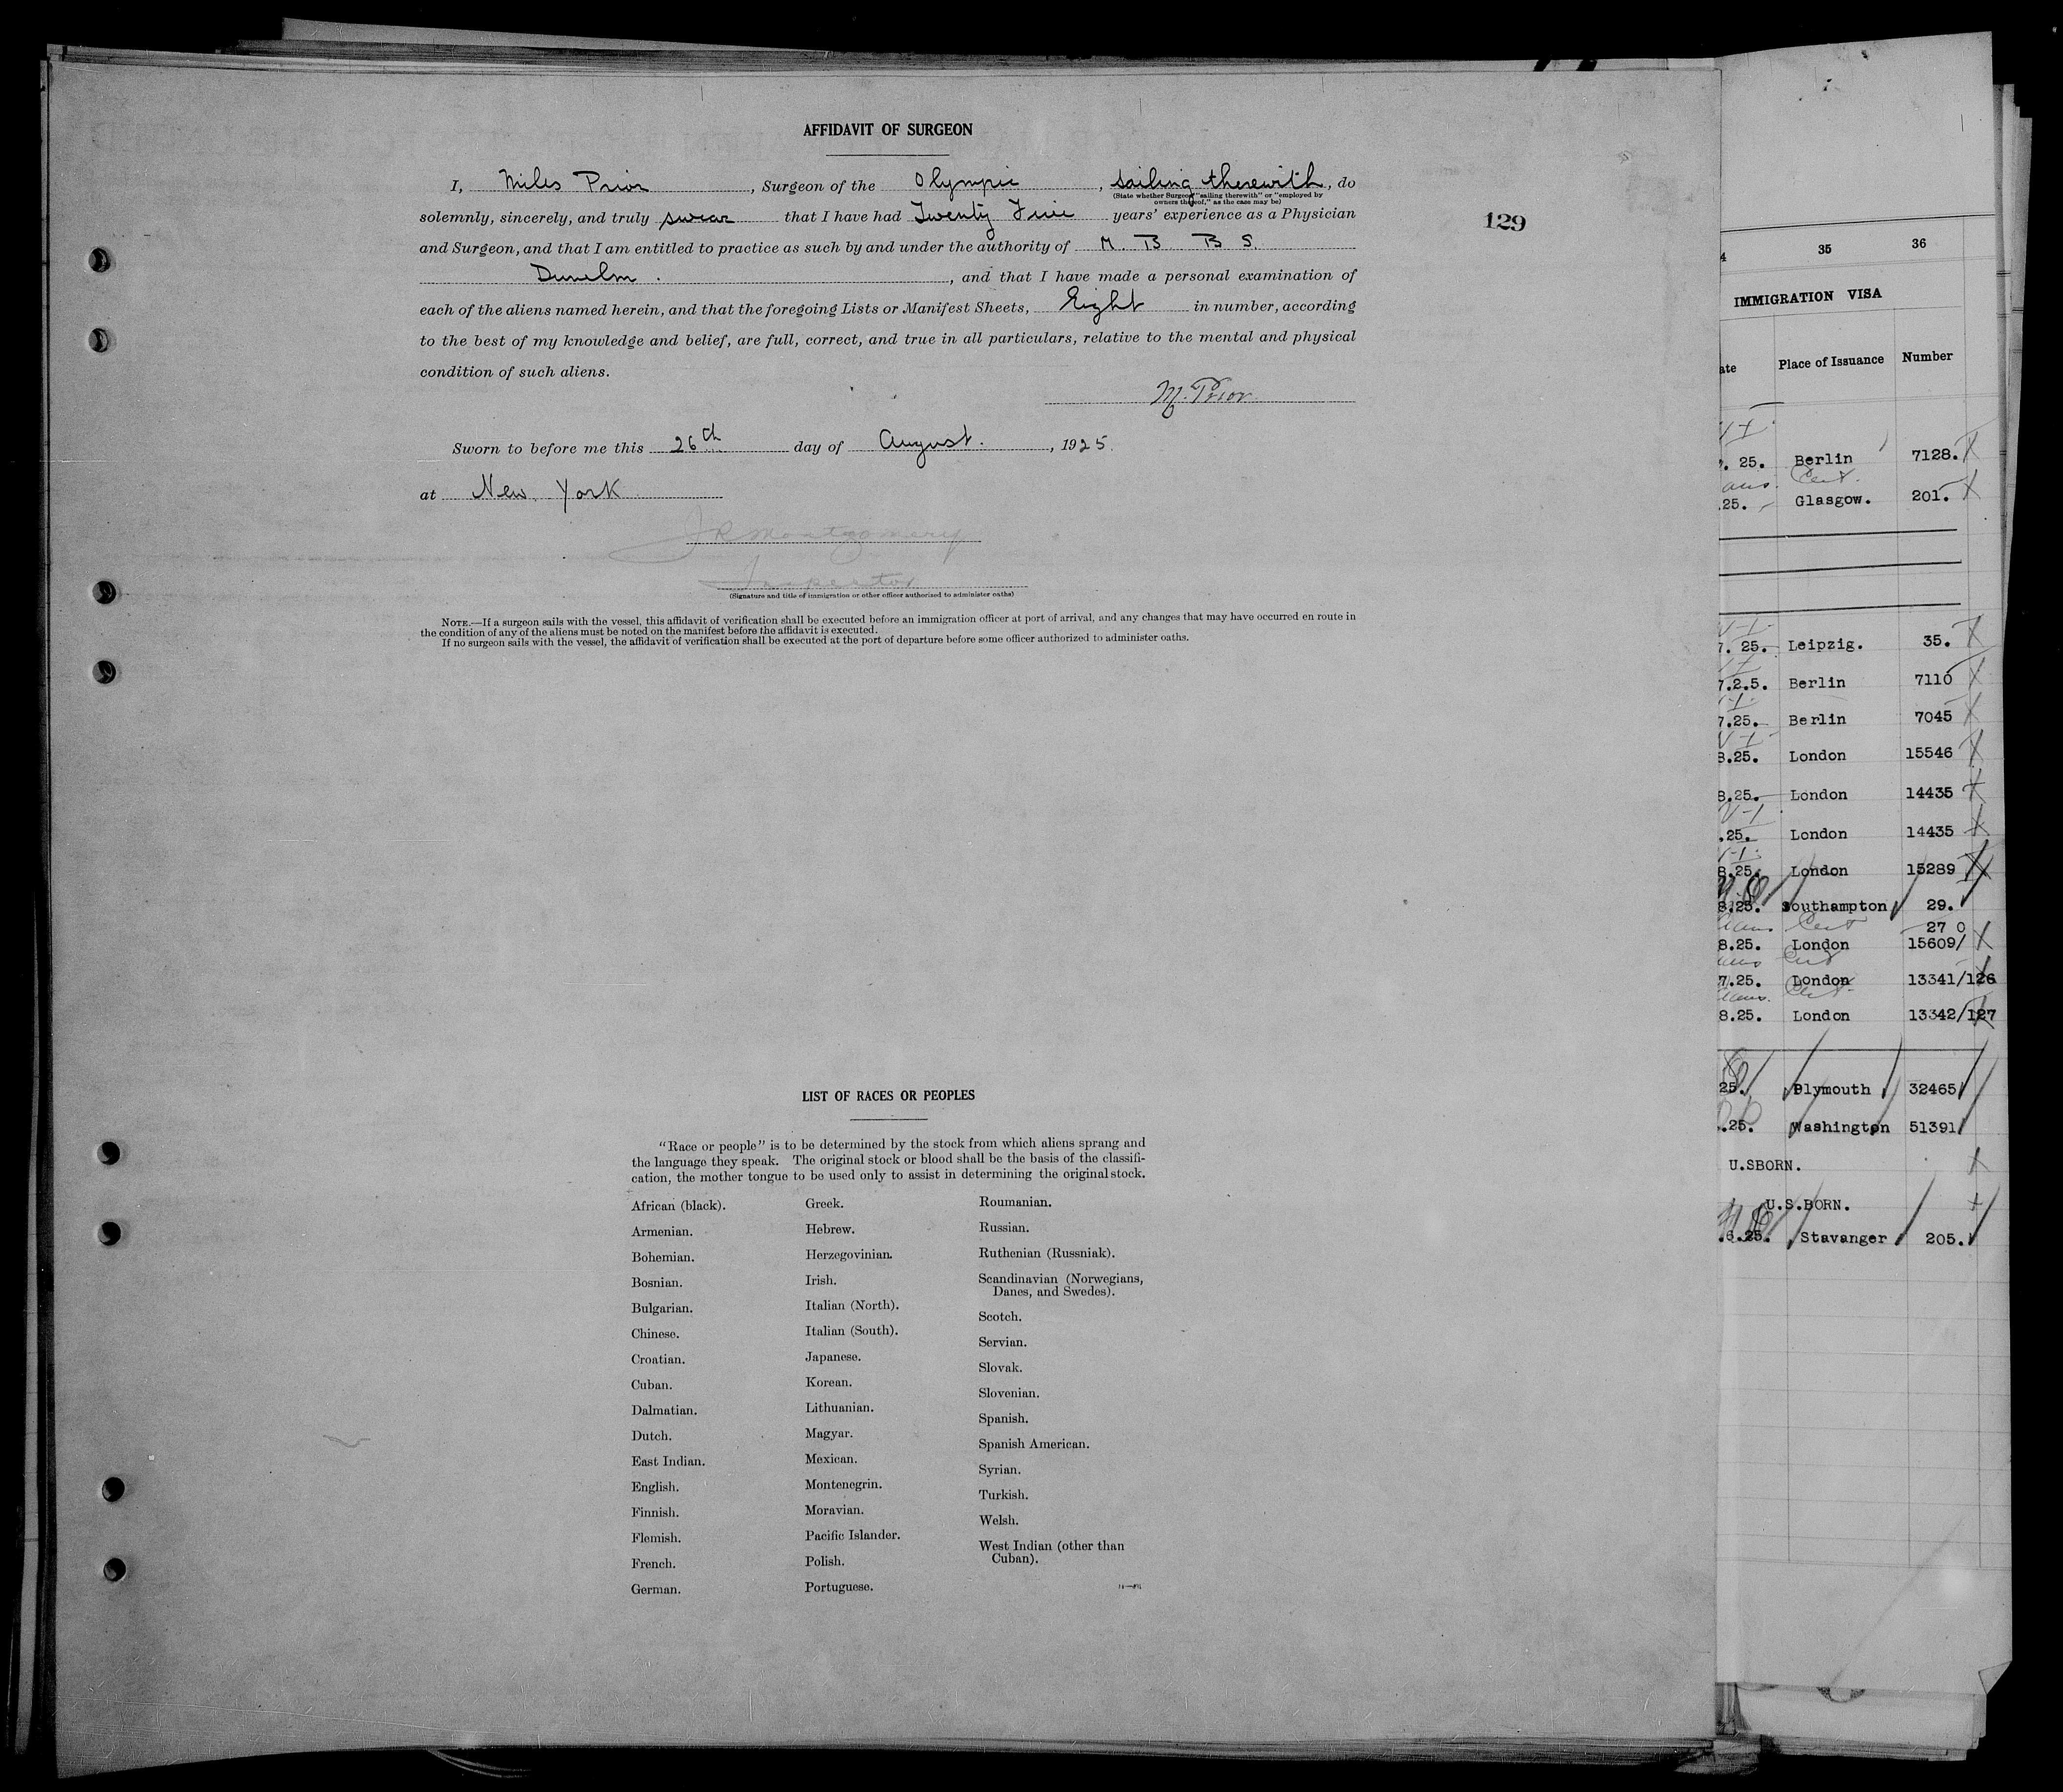 AFFIDAVIT OF SURGEON
I, Miles Prior, Surgeon of the Olympic, sailing therewith, do
(State whether Surgeon "sailing therewith" or "employed by
owners thereof," as the case may be)
solemnly, sincerely, and truly swear that I have had Twenty Five years' experience as a Physician
and Surgeon, and that I am entitled to practice as such by and under the authority of M. B B S.
Dunelm. , and that I have made a personal examination of
each of the aliens named herein, and that the foregoing Lists or Manifest Sheets, Eight in number, according
to the best of my knowledge and belief, are full, correct, and true in all particulars, relative to the mental and physical
condition of such aliens.
M. Prior
Sworn to before me this 26th day of August. , 1925.
at New York
JR Montgomery
Inspector
(Signature and title of immigration or other officer authorized to administer oaths)
NOTE.—If a surgeon sails with the vessel, this affidavit of verification shall be executed before an immigration officer at port of arrival, and any changes that may have occurred en route in
the condition of any of the aliens must be noted on the manifest before the affidavit is executed.
If no surgeon sails with the vessel, the affidavit of verification shall be executed at the port of departure before some officer authorized to administer oaths.
129
LIST OF RACES OR PEOPLES
"Race or people" is to be determined by the stock from which aliens sprang and
the language they speak. The original stock or blood shall be the basis of the classifi-
cation, the mother tongue to be used only to assist in determining the original stock.
African (black).
Armenian.
Bohemian.
Bosnian.
Bulgarian.
Chinese.
Croatian.
Cuban.
Dalmatian.
Dutch.
East Indian.
English.
Finnish.
Flemish.
French.
German.
Greek.
Hebrew.
Herzegovinian.
Irish.
Italian (North).
Italian (South).
Japanese.
Korean.
Lithuanian.
Magyar.
Mexican.
Montenegrin.
Moravian.
Pacific Islander.
Polish.
Portuguese.
Roumanian.
Russian.
Ruthenian (Russniak).
Scandinavian (Norwegians,
Danes, and Swedes).
Scotch.
Servian.
Slovak.
Slovenian.
Spanish.
Spanish American.
Syrian.
Turkish.
Welsh.
West Indian (other than
Cuban).
4 35 36
IMMIGRATION VISA
ate Place of Issuance Number
. 25. Berlin 7128.
Cert.
.25. Glasgow. 201.
7. 25. Leipzig. 35.
7.2.5. Berlin 7110
7.25. Berlin 7045
8.25. London 15546
8.25. London 14435
.25. London 14435
8.25. London 15289
8.25. Southampton 29.
Cert 27 0
8.25. London 15609/
Cert
7.25. London 13341/126
Cert
8.25. London 13342/127
25. Plymouth 32465
.25. Washington 51391
U.SBORN.
U.S.BORN.
.6.25. Stavanger 205.